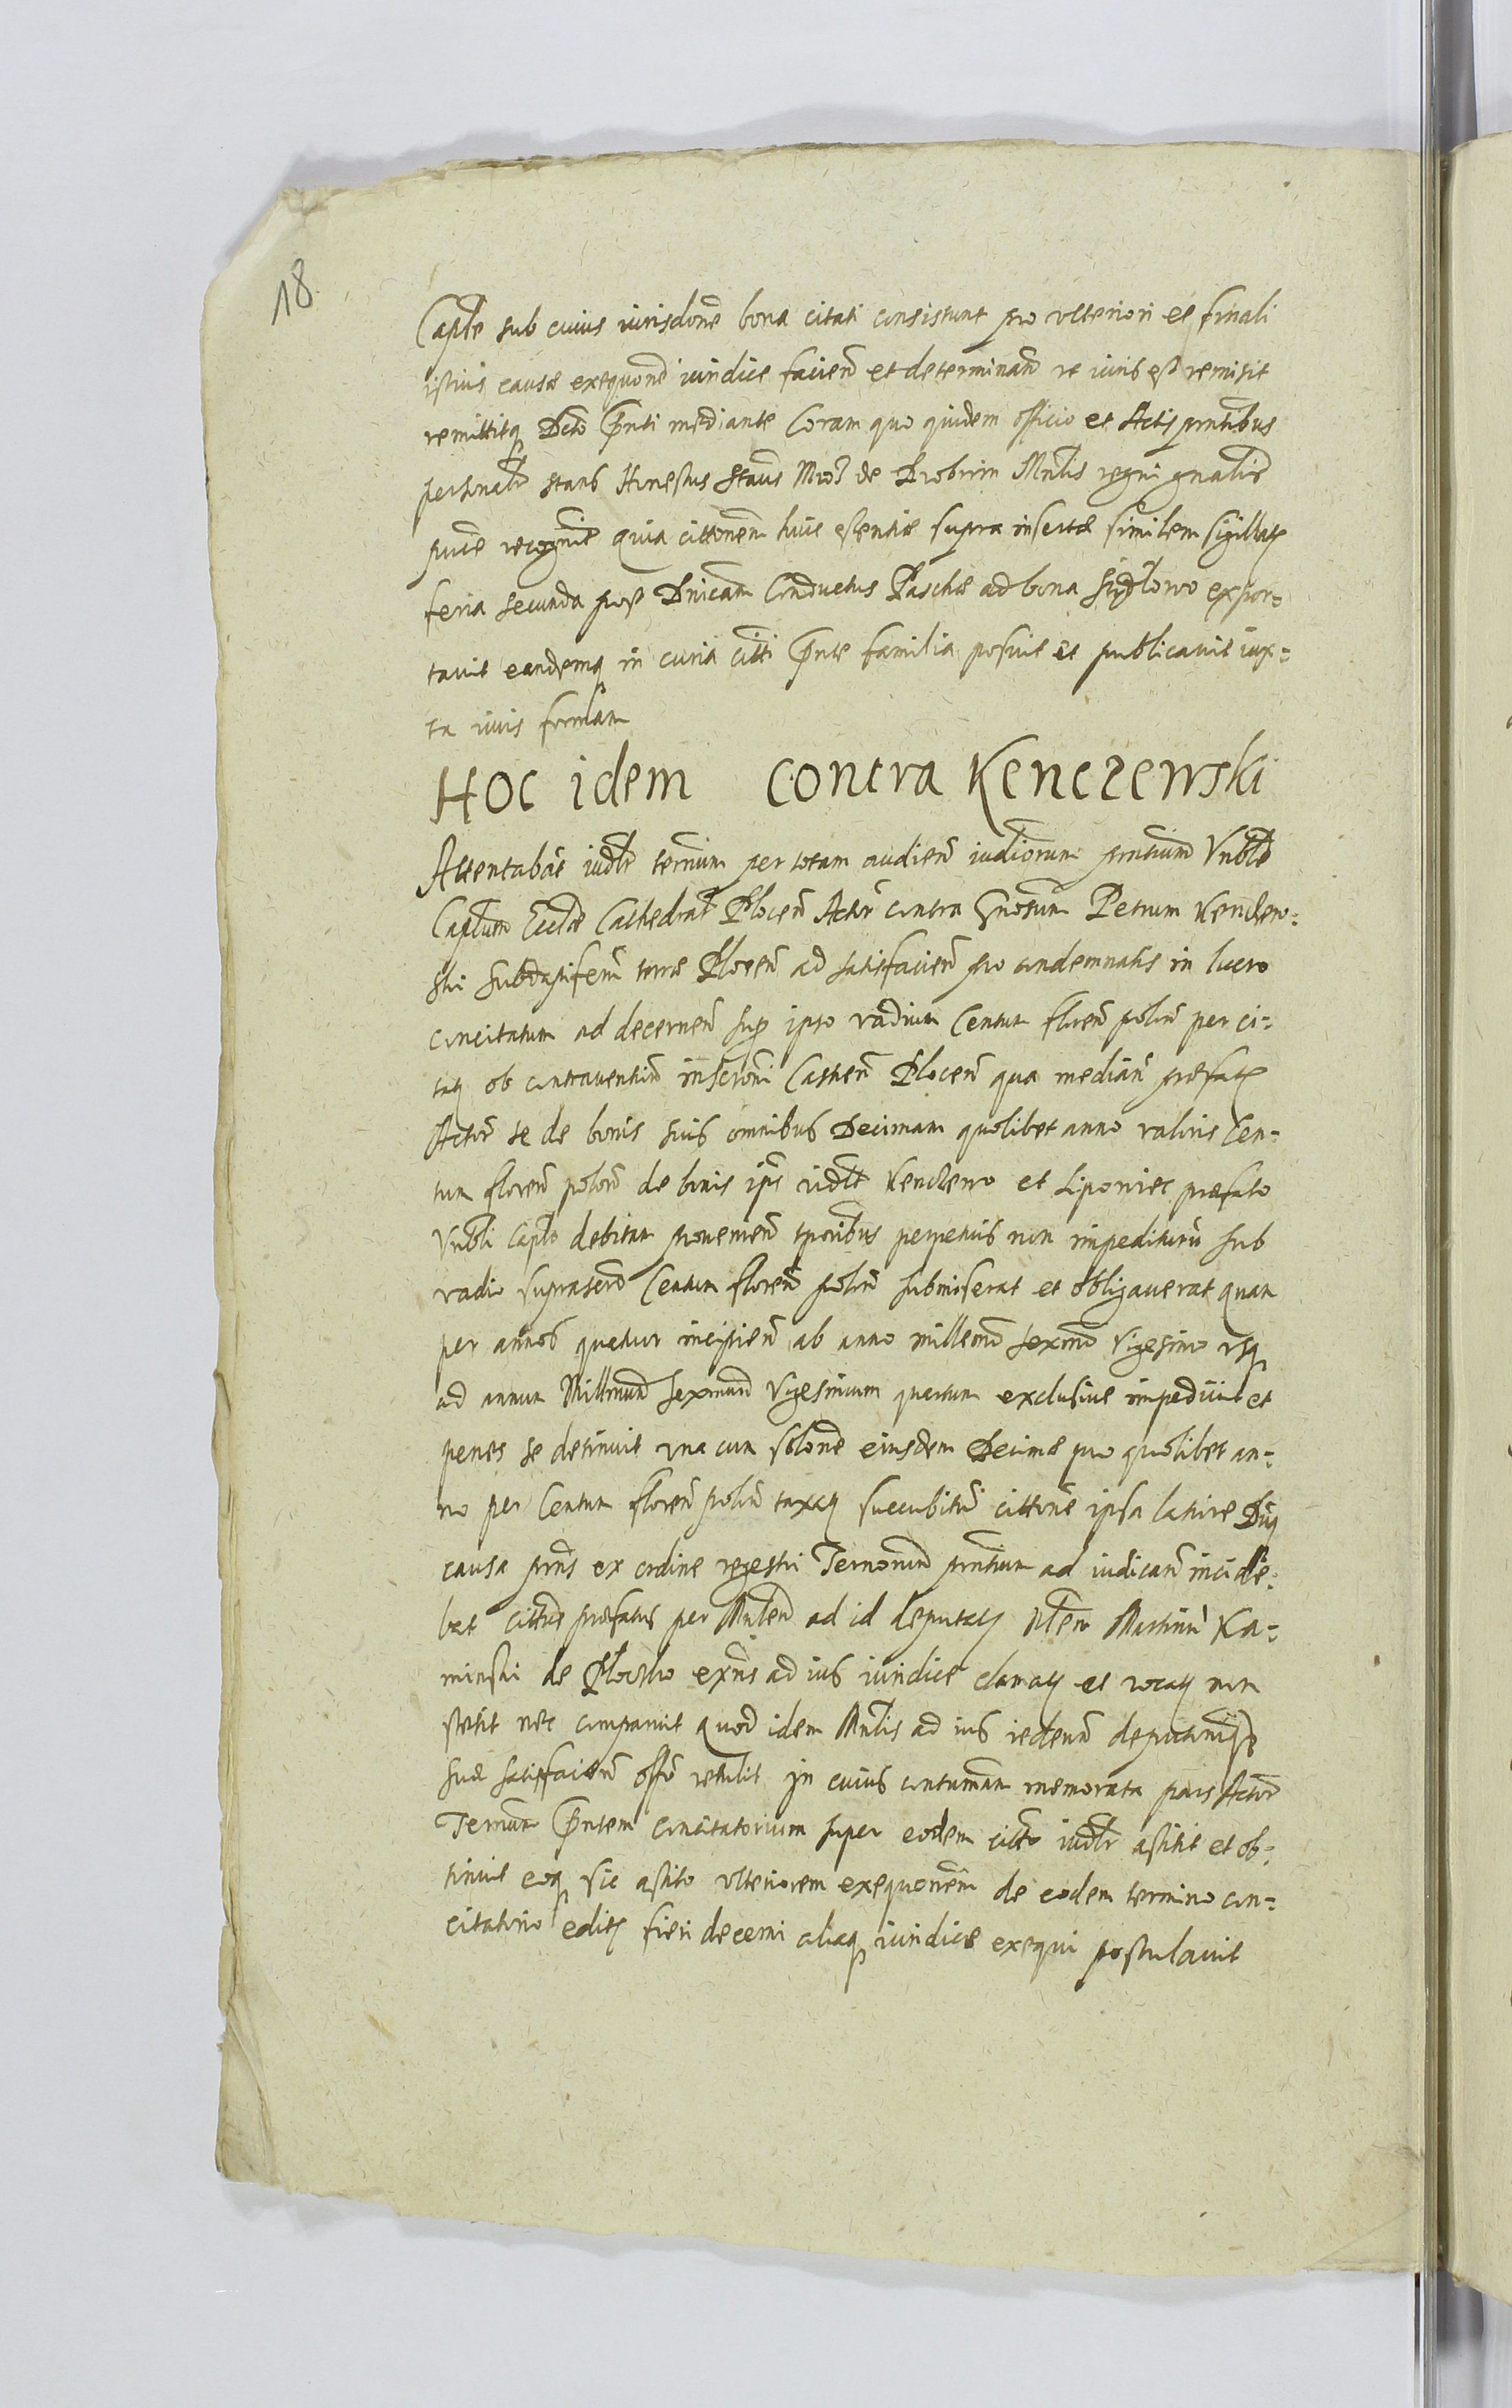 18
Caple sub cuius iurisdone bona citati consistunt pro ulteriori et finali
istius causæ exequone iuridice facien et determinan ut iuris est remisit
remittitq Dcto Pnti mediante Coram quo quidem officio et Actis pntibus
personalr stans Honestus Staus de Drobinin Mnlis regni gnalis
recognit quia cittonem huic sentiæ supra insertæ similem sigillat
feria secunda post Dnicam Conductus Paschæ ad bona expor=
tavit eandemq in curia citti Pnte familia posuit et publicavit iux=
ta iuris formam
HOC idem contra Kenczewski
Attentabat iudlr termin per totam audien iudiciorum pntium Vnble
Caplum Eccliæ Cathedral Plocen Actor contra Gnosum Petrum Kenczew=
ski Subdapiferu terræ Plocen ad satisfacien pro condemnatis in lucro
concitatum ad decernen sup ipso vadium Centum floren polon per ci=
tat ob contravention inscroni Castren Plocen qua median præfat
Actor se de bonis suis omnibus Decimam quolibet anno valoris Cen=
tum floren polon de bonis ips vidlt Kenczewo et Liponiec præfato
Vnbli Caplo debitam provenien tporibus perpetuis non impeditur sub
vadio suprascro Centum floren polon submiserat et obligaverat quam
per annos quatuor incipien ab anno millemo sexcmo Vigesimo usq
ad annum Millmum Sexmum Vigesimum quartum exclusive impediuit et
penes se detinuit una cum solone eiusdem Decimæ pro quolibet an=
no per Centum floren polon taxat succubitur cittone ipsa latiore Dum
causa pns ex ordine regestri Termorum pntium ad iudican incide=
bat cittus præfatus per Mnlem ad id deputat Martinu Ka=
minski de Plocko exns ad ius iuridice clamat et vocat non
stetit nec comparuit quod idem Mnlis ad ius redeun deputoniq
suæ satisfacien offo retulit In cuius contumam memorata pars Actor
Termum Pntem concitatorium super eodem citto iudlr astitit et ob=
tinuit eoq sic astito ulteriorem exequonem de eodem termino con=
citatorio edit fieri decerni aliaq iuridice exequi postulavit